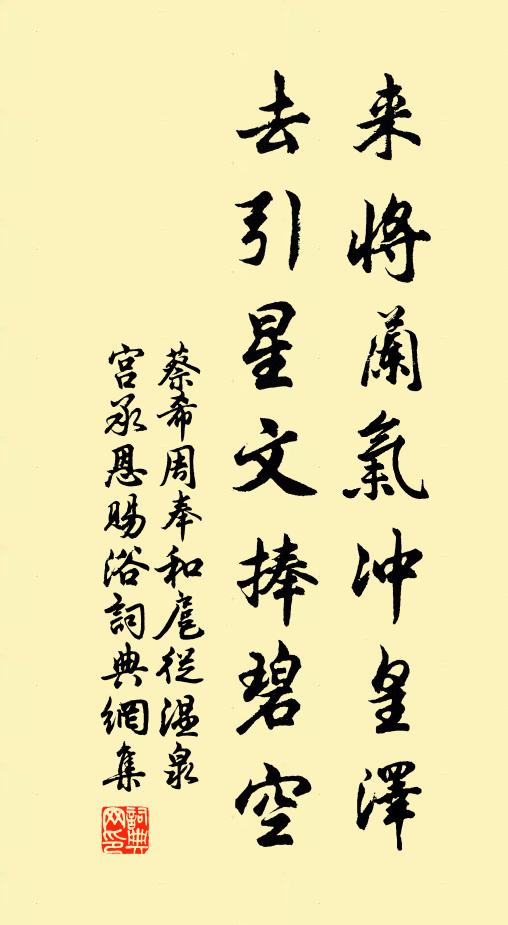 来將蘭氣冲皇澤
去引星文捧碧空
蔡希周奉和扈從温泉
宫承恩賜浴詞典網集
詞典
网印